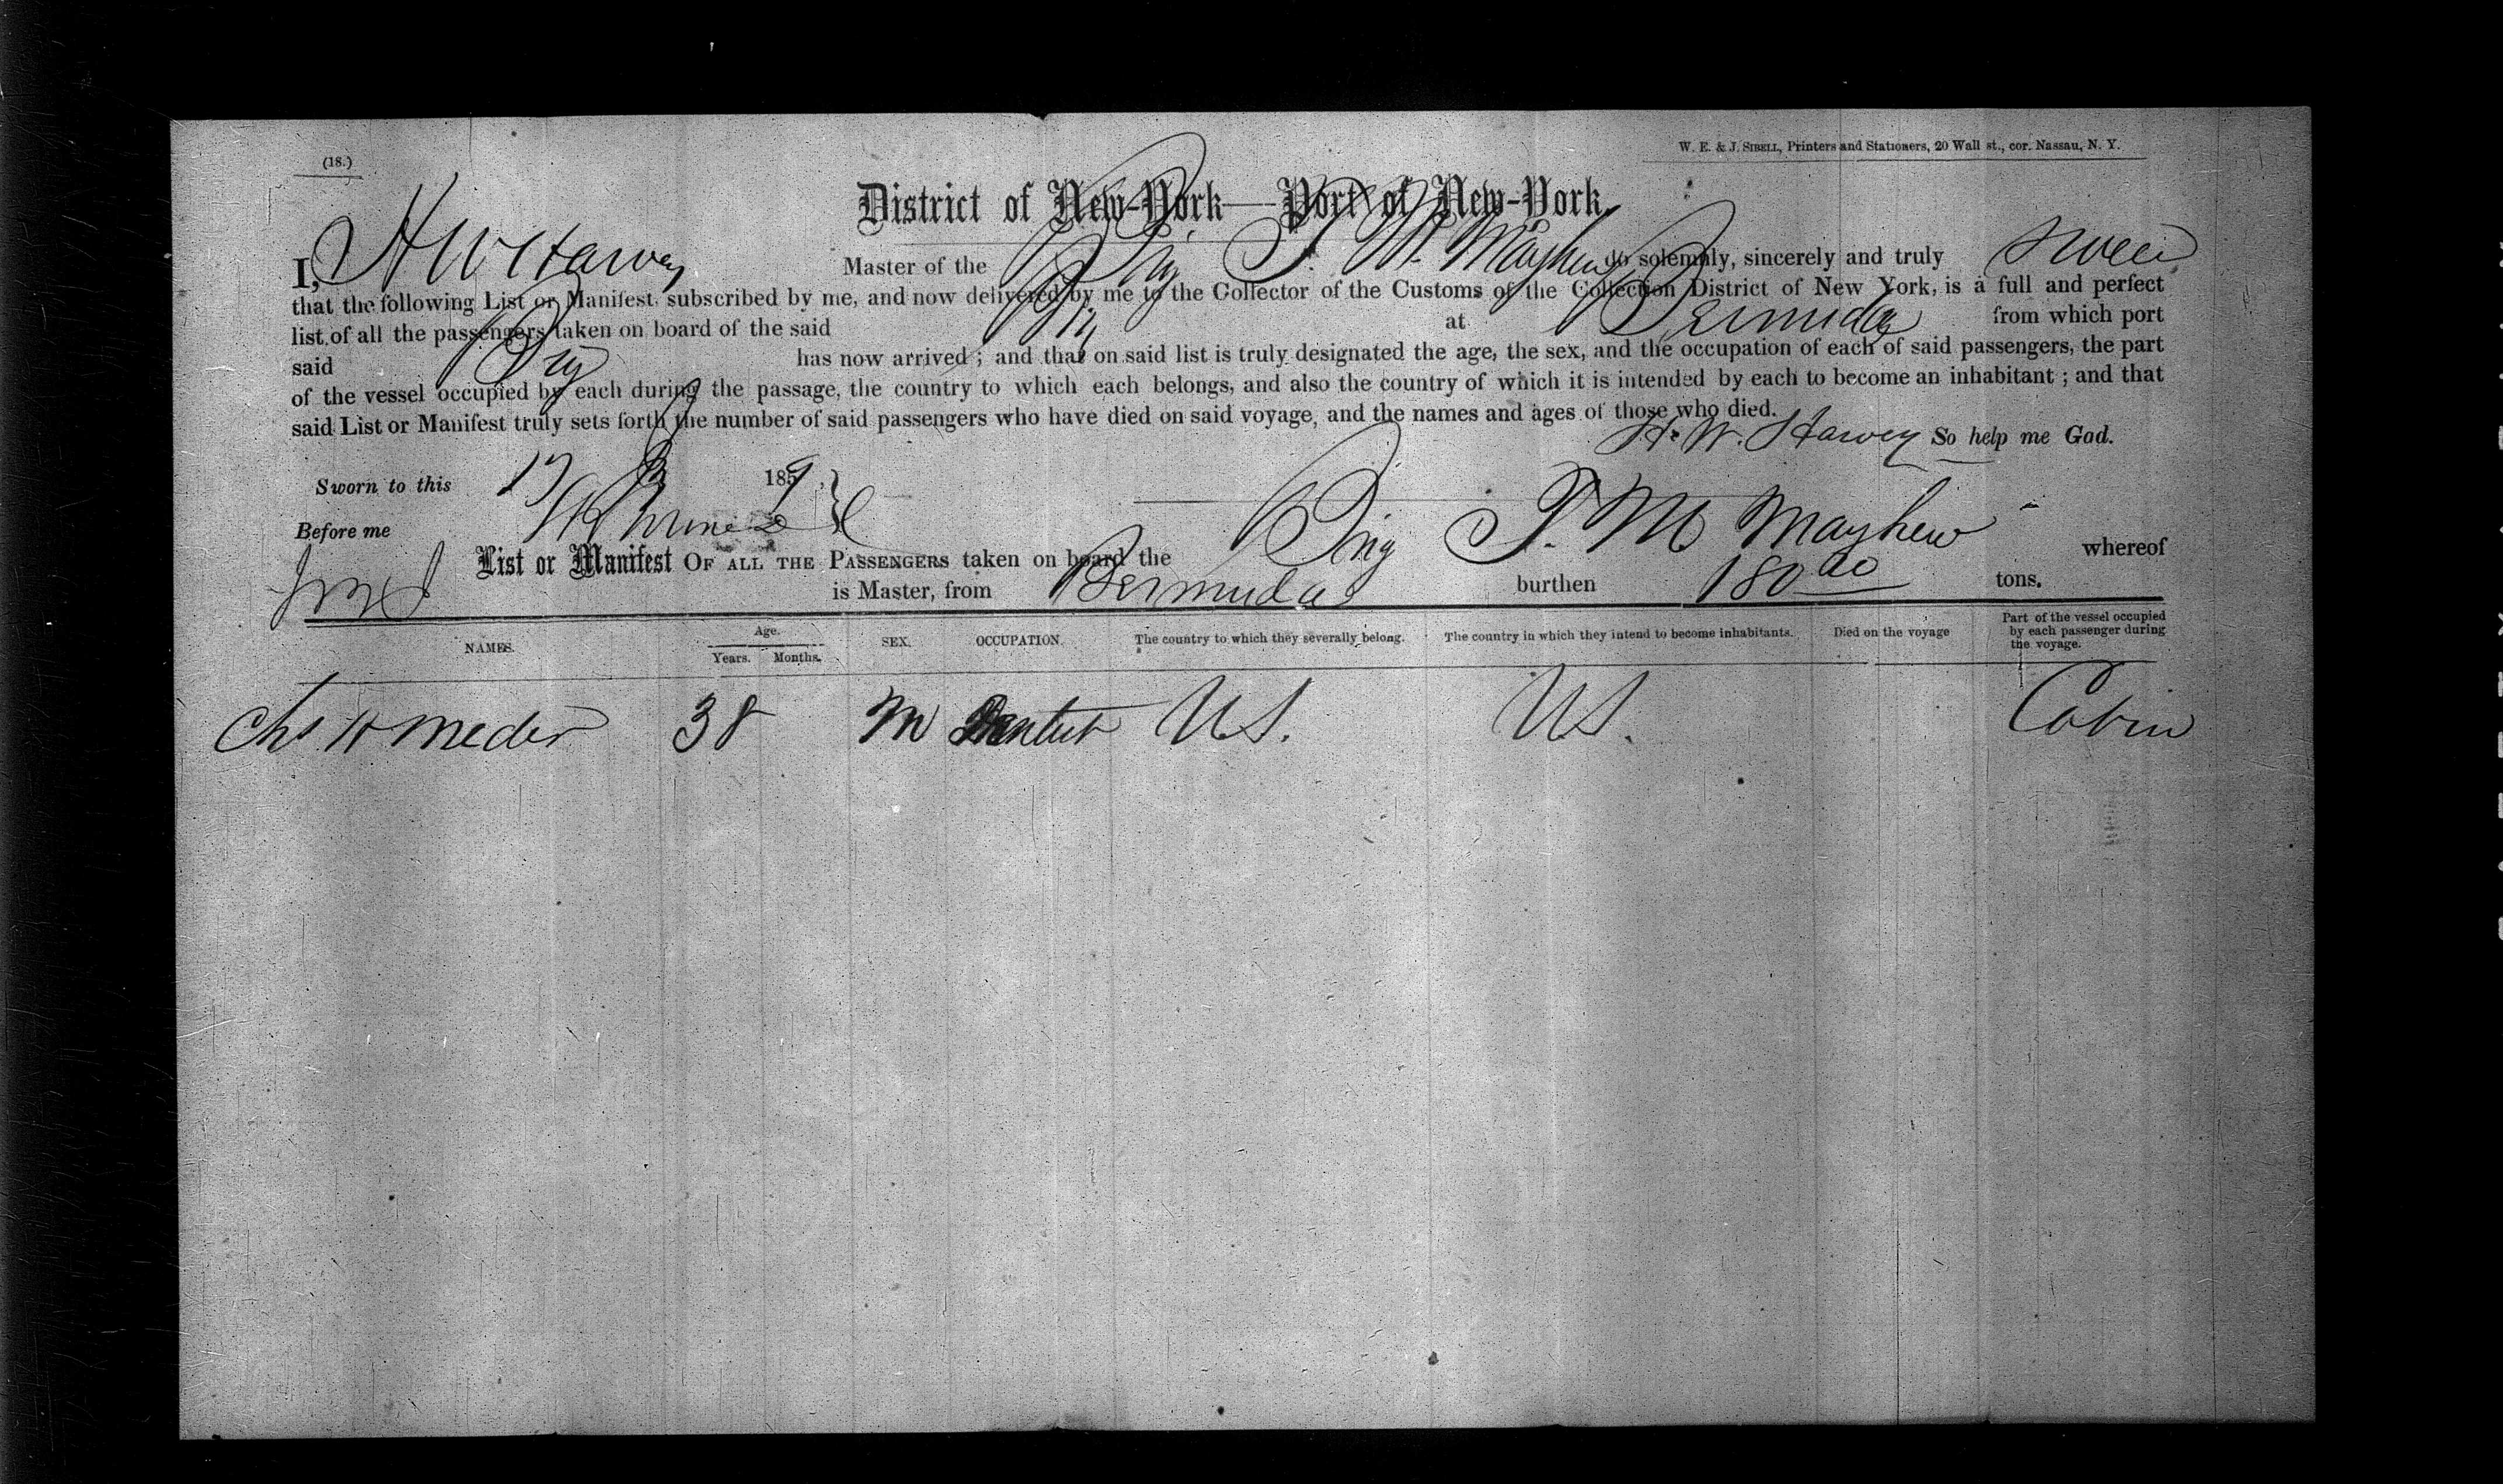 (18.)
W. E. & J. SIBELL, Printers and Stationers, 20 Wall st., cor. Nassau, N. Y.
District of New-York—Port of New-York.
I, H W Harvey Master of the Brig T. M. Mayhew do solemnly, sincerely and truly swear
that the following List or Manifest, subscribed by me, and now delivered by me to the Collector of the Customs of the Collection District of New York, is a full and perfect
list of all the passengers taken on board of the said Brig at Bermuda from which port
said Brig has now arrived; and that on said list is truly designated the age, the sex, and the occupation of each of said passengers, the part
of the vessel occupied by each during the passage, the country to which each belongs, and also the country of which it is intended by each to become an inhabitant; and that
said List or Manifest truly sets forth the number of said passengers who have died on said voyage, and the names and ages of those who died.
H. W. Harvey So help me God.
Sworn to this 17 1859
Before me
List or Manifest OF ALL THE PASSENGERS taken on board the Brig T. M Mayhew whereof
is Master, from Bermuda burthen 180 tons.
NAMES. Age. Years. Months. SEX. OCCUPATION. The country to which they severally belong. The country in which they intend to become inhabitants. Died on the voyage Part of the vessel occupied by each passenger during the voyage.
Chs H Meder 38 M Dentist U.S. U.S. Cabin